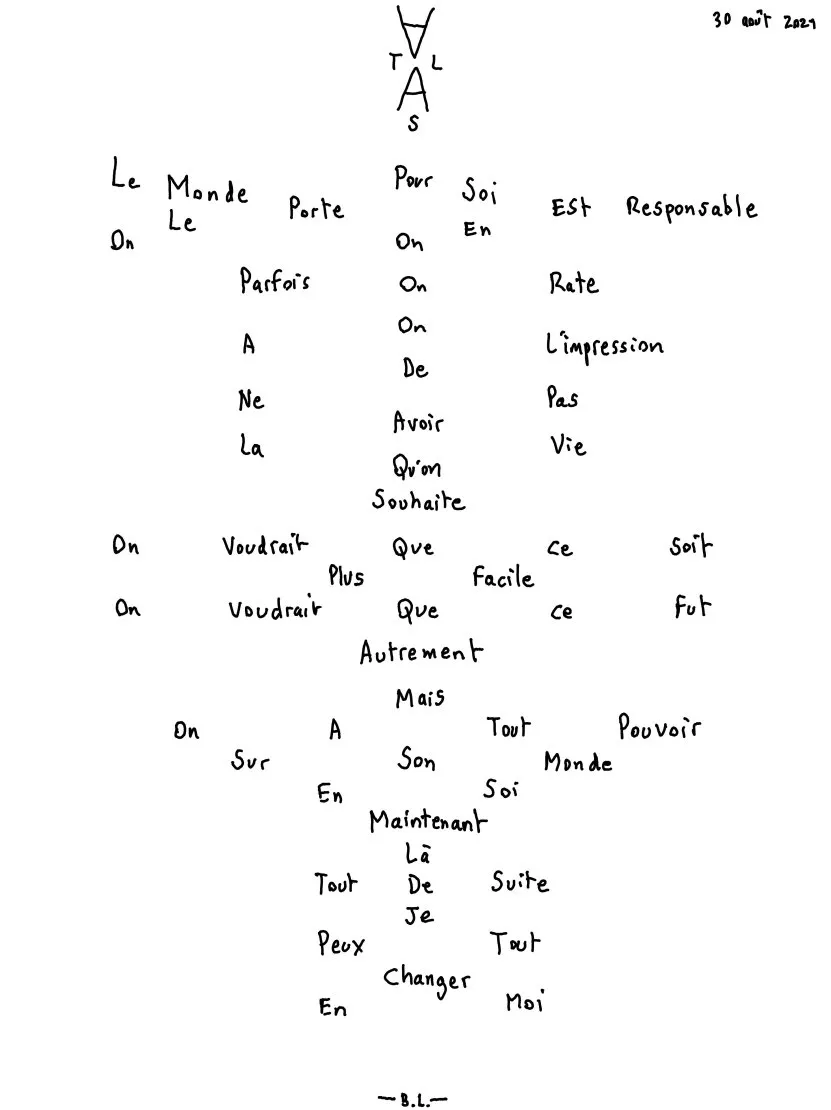 30 août 2021
A
T L
A
S
Le Monde Pour Soi
Porte Est Responsable
On Le On En
Parfois On Rate
On
A L'impression
De
Ne Pas
Avoir
La Vie
Qu'on
Souhaite
On Voudrait Que ce Soit
Plus Facile
On Voudrait Que ce Fut
Autrement
Mais
On A Tout Pouvoir
Sur Son Monde
En Soi
Maintenant
Là
Tout De Suite
Je
Peux Tout
Changer
En Moi
— B.L. —